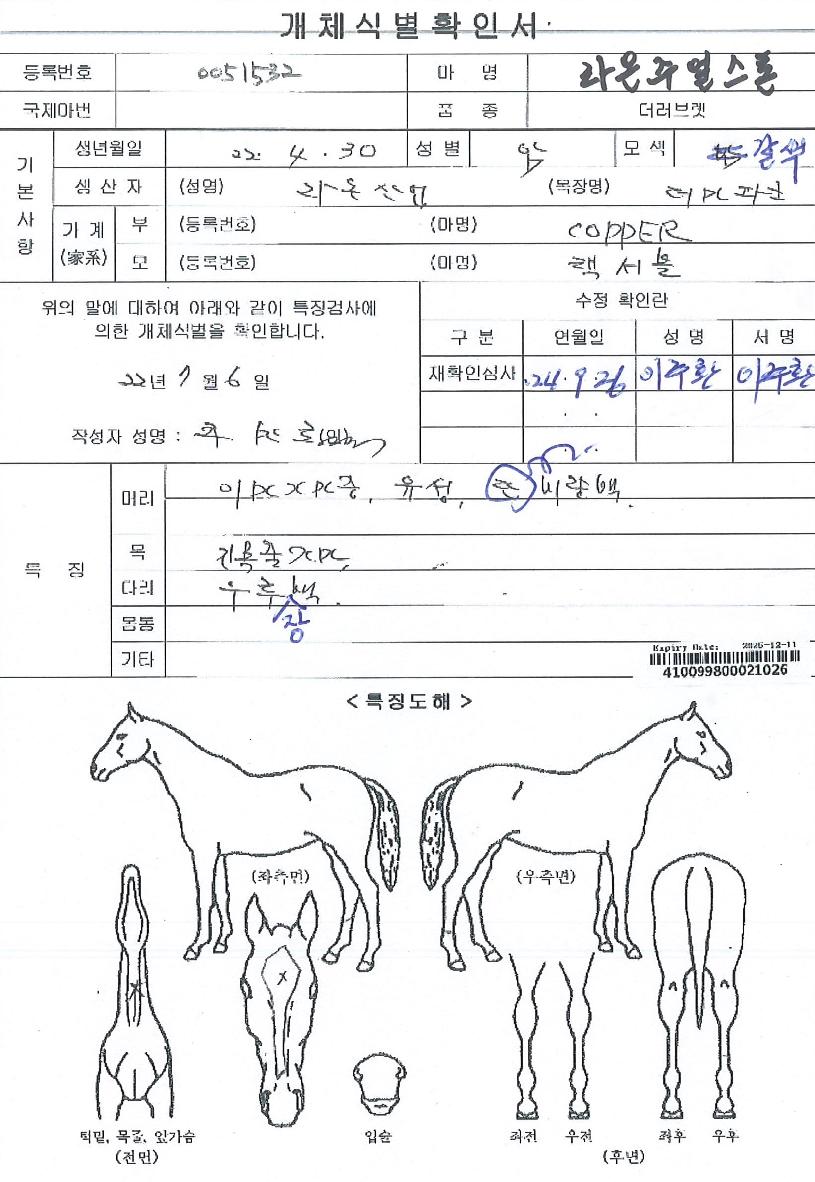 개체식별확인서
등록번호 0051532 마 명 라온쥬얼스톤
국제마번 품 종 더러브렛
기본사항
생년월일 22. 4. 30 성 별 암 모 색 갈색
생 산 자 (성명) 라온산업 (목장명)
가 계 (家系) 부 (등록번호) (마명) COPPER
모 (등록번호) (마명) 랙시블
위의 말에 대하여 아래와 같이 특징검사에
의한 개체식별을 확인합니다.
22년 7월 6일
작성자 성명 :
수정 확인란
구 분 연월일 성 명 서 명
재확인심사 24.9.26 이주환 이주환
특 징
머리 유성, 비량백.
목
다리 우후 장백.
몸통
기타
Expiry Date: 2026-12-11
410099800021026
<특징도해>
(좌측면) (우측면)
턱밑, 목줄, 앞가슴 입술 좌전 우전 좌후 우후
(전면) (후면)